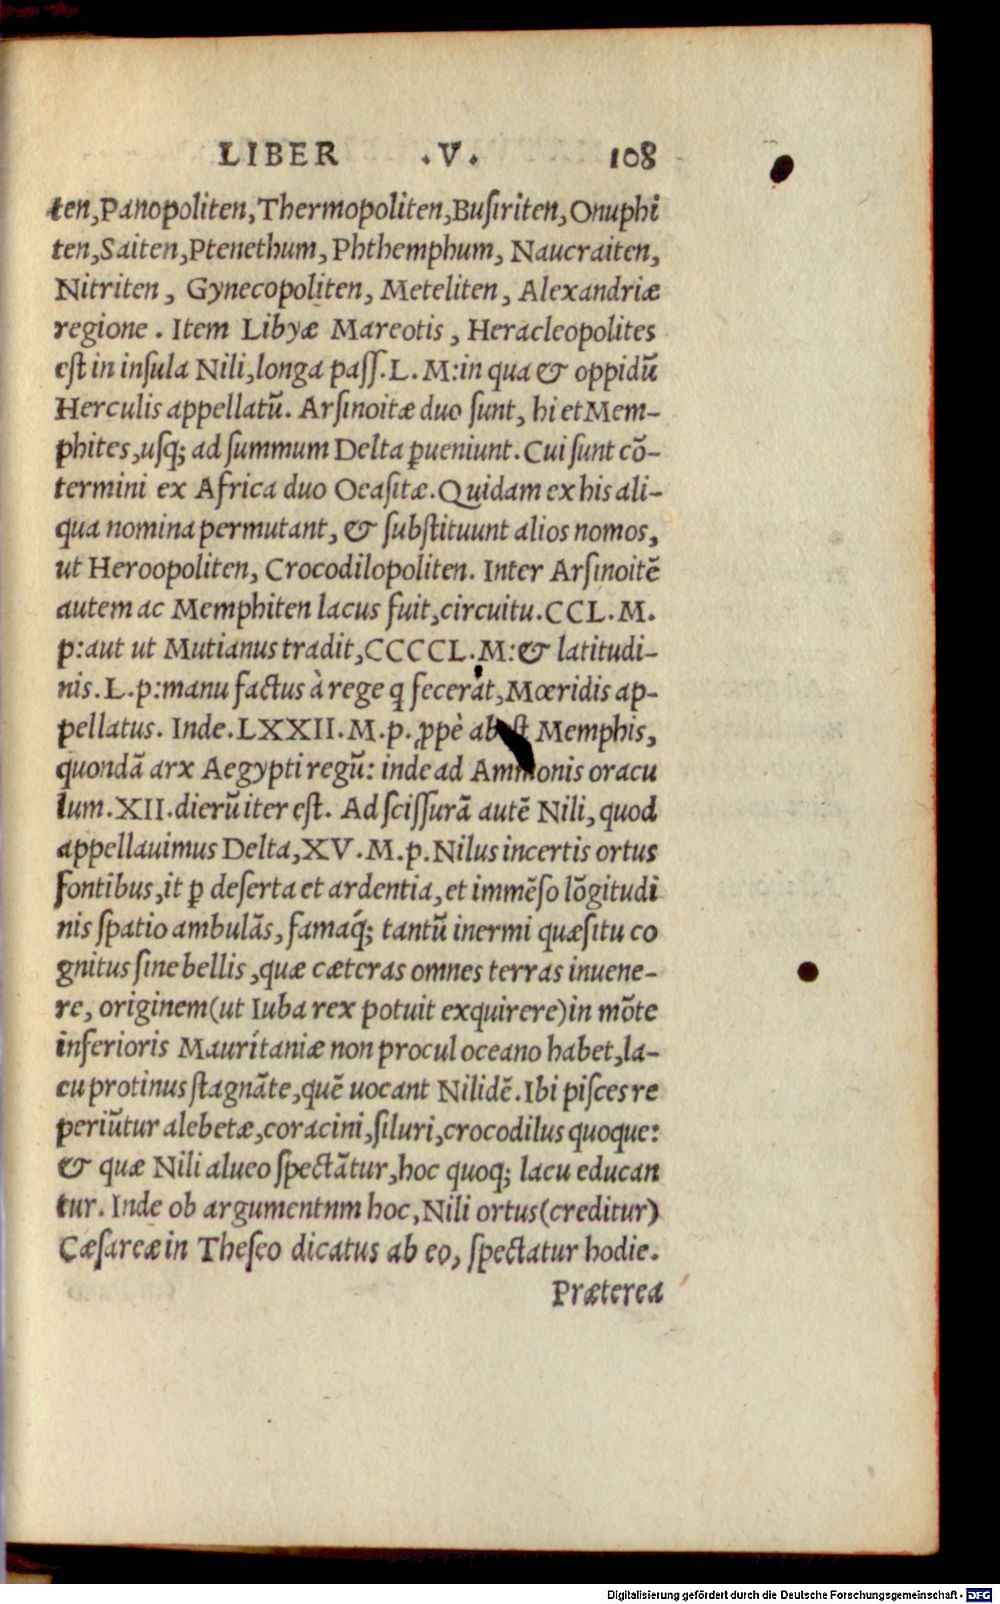 LIBER .V. 108
ten,Panopoliten,Thermopoliten,Busiriten,Onuphi
ten,Saiten,Ptenethum, Phthemphum, Naucraiten,
Nitriten, Gynecopoliten, Meteliten, Alexandriæ
regione. Item Libyæ Mareotis, Heracleopolites
est in insula Nili,longa pass.L.M:in qua & oppidū
Herculis appellatū. Arsinoitæ duo sunt, hi et Mem-
phites,usq; ad summum Delta ꝑueniunt.Cui sunt cō-
termini ex Africa duo Oeasitæ.Quidam ex his ali-
qua nomina permutant, & substituunt alios nomos,
ut Heroopoliten, Crocodilopoliten. Inter Arsinoitē
autem ac Memphiten lacus fuit,circuitu.CCL.M.
p:aut ut Mutianus tradit,CCCCL.M:& latitudi-
nis.L.p:manu factus à rege q fecerat,Mœridis ap-
pellatus. Inde.LXXII.M.p.ꝓpè abest Memphis,
quondā arx Aegypti regū: inde ad Ammonis oracu
lum.XII.dierū iter est. Ad scissurā autē Nili,quod
appellauimus Delta,XV.M.p.Nilus incertis ortus
fontibus,it ꝑ deserta et ardentia,et immēso lōgitudi
nis spatio ambulās,famaq́; tantū inermi quæsitu co
gnitus sine bellis,quæ cæteras omnes terras inuene-
re, originem(ut Iuba rex potuit exquirere)in mōte
inferioris Mauritaniæ non procul oceano habet,la-
cu protinus stagnāte,quē uocant Nilidē.Ibi pisces re
periūtur alebetæ,coracini,siluri,crocodilus quoque:
& quæ Nili alueo spectātur,hoc quoq; lacu educan
tur. Inde ob argumentnm hoc,Nili ortus(creditur)
Cæsareæ in Theseo dicatus ab eo, spectatur hodie.
Præterea
Digitalisierung gefördert durch die Deutsche Forschungsgemeinschaft - DFG